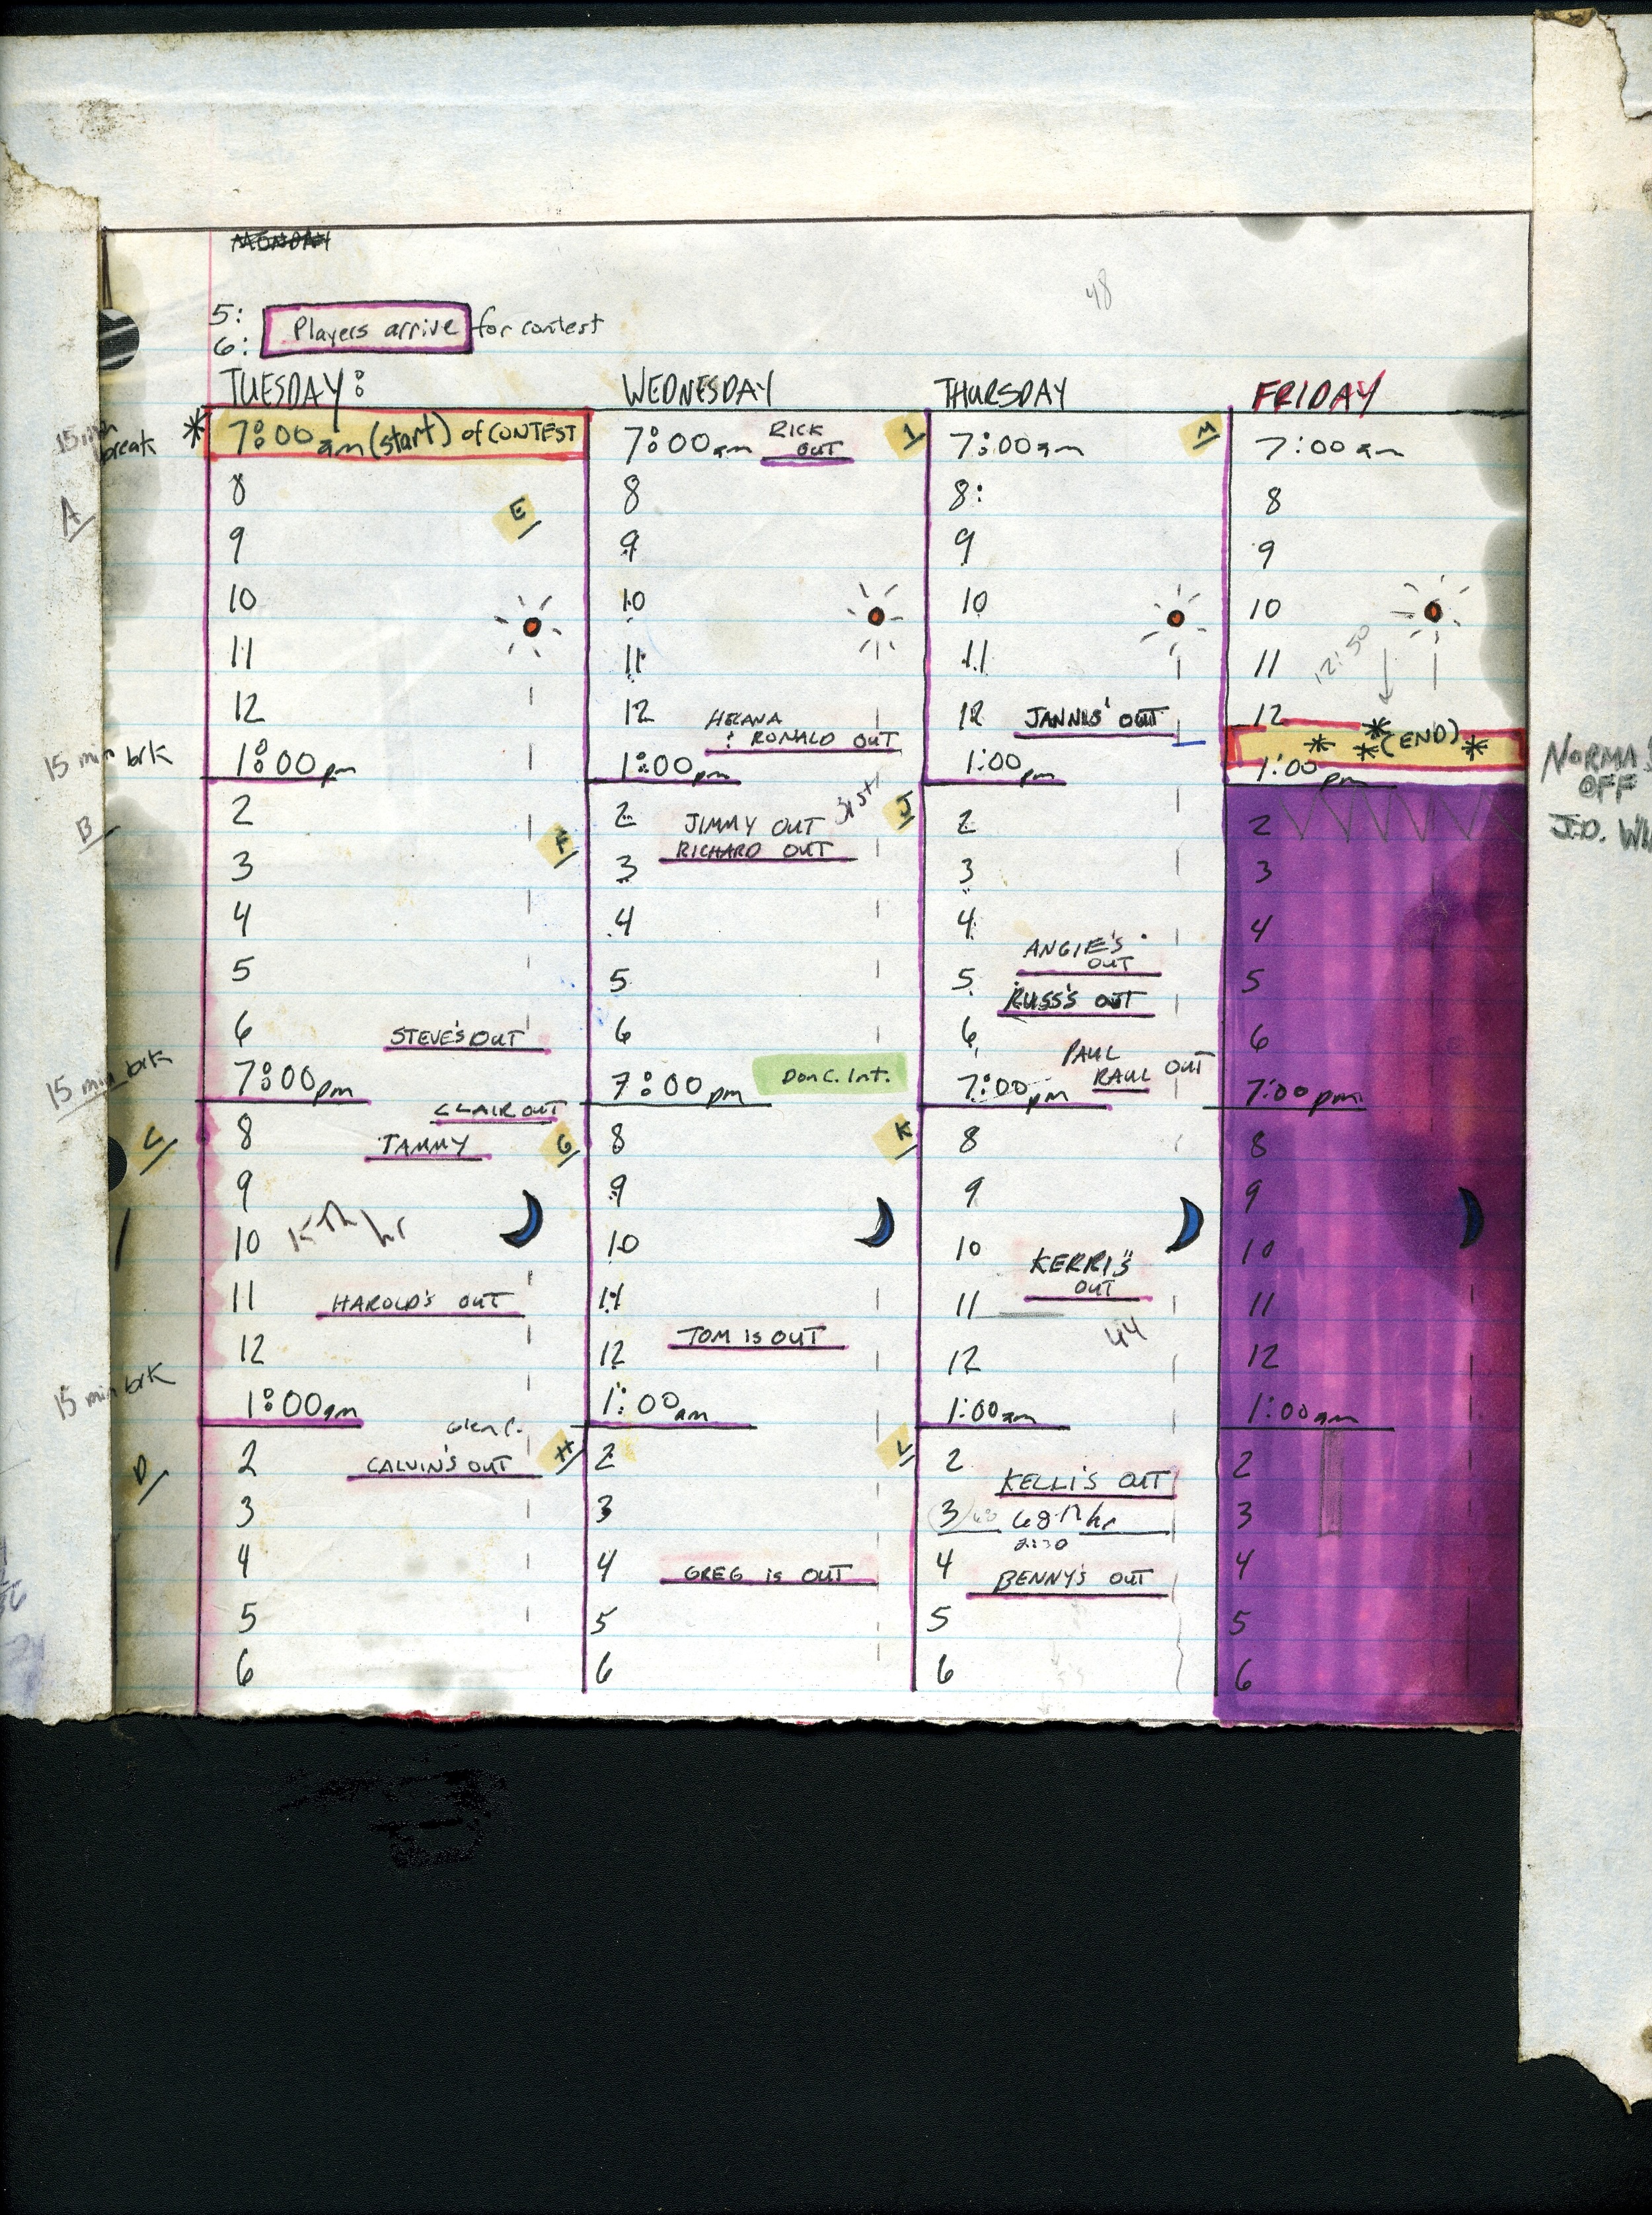 MONDAY
48
5:
Players arrive for contest
6:
TUESDAY:
15 min break
* 7:00 am (start) of CONTEST
A
8
E
9
10
11
12
15 min brk
1:00 pm
B
2
F
3
4
5
6
STEVE'S OUT
15 min brk
7:00 pm
CLAIR OUT
C
8
TAMMY
G
9
10
11
HAROLD'S OUT
12
15 min brk
1:00 am
Glen C.
D
2
CALVIN'S OUT
H
3
4
5
6
WEDNESDAY
7:00 am
RICK
OUT
I
8
9
10
11
12
HELANA
: RONALD OUT
1:00 pm
31st
2
JIMMY OUT
J
RICHARD OUT
3
4
5
6
7:00 pm
Don C. Int.
8
K
9
10
11
TOM IS OUT
12
1:00 am
2
L
3
4
GREG is OUT
5
6
THURSDAY
7:00 am
M
8:
9
10
11
12
JANNIS' OUT
1:00 pm
2
3
4
ANGIE'S
OUT
5
RUSS'S OUT
6
PAUL
RAUL OUT
7:00 pm
8
9
10
KERRI'S
OUT
11
44
12
1:00 am
2
KELLI'S OUT
3 68 68th hr
2:30
4
BENNY'S OUT
5
6
FRIDAY
7:00 am
8
9
10
11
12:50
12
* * * (END) *
1:00 pm
NORMA'S
OFF
2
J.D.
3
4
5
6
7:00 pm
8
9
10
11
12
1:00 am
2
3
4
5
6